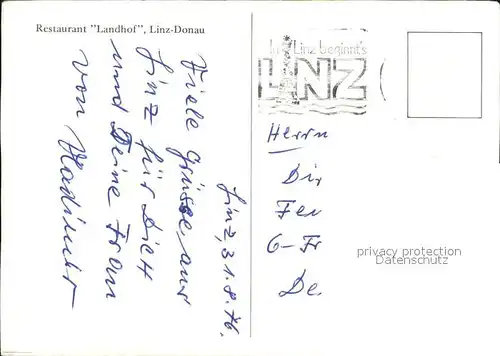 Restaurant "Landhof", Linz-Donau
Linz, 31.8.76.
Viele Grüsse aus
Linz für Dich
und Deine Frau
von
In Linz beginnt's
LINZ
Herrn
Dir
Fer
G-Fr
De
privacy protection
Datenschutz